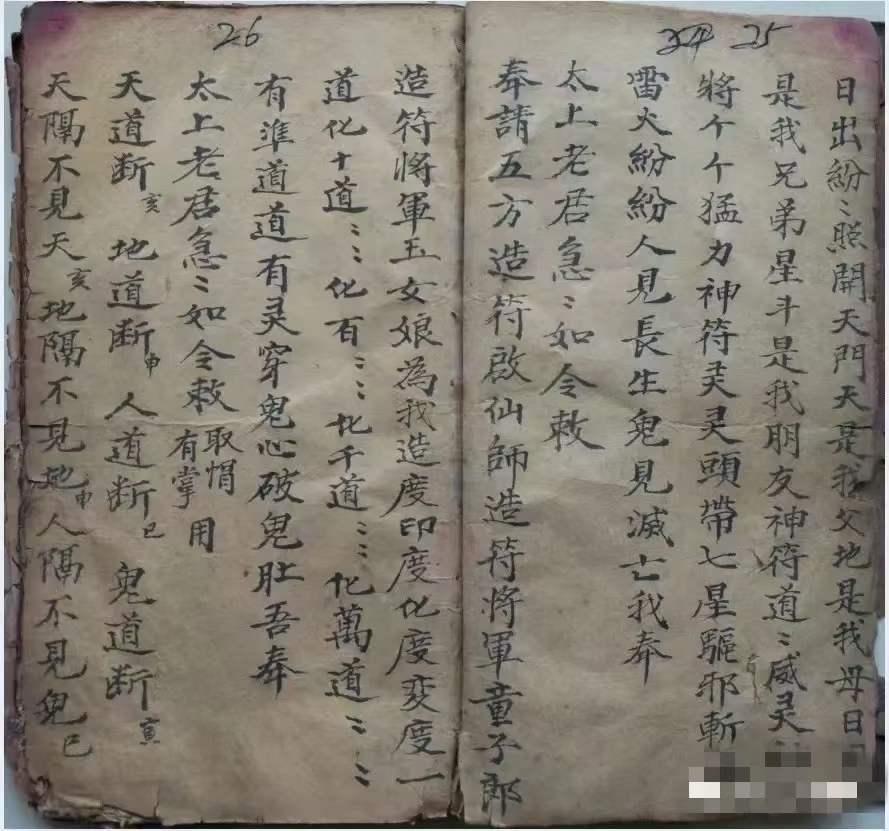 25
日出紛〻照開天門天是我父地是我母日
是我兄弟星斗是我朋友神符道〻威灵
將个个猛力神符灵灵頭帶七星驅邪斬
雷火紛紛人見長生鬼見滅亡我奉
太上老君急〻如令敕
奉請五方造符啟仙師造符將軍童子郎
26
造符將軍玉女娘為我造度印度化度变度一
道化十道〻〻化百〻〻化千道〻〻化萬道〻〻
有準道道有灵穿鬼心破鬼肚吾奉
太上老君急〻如令敕 取悁有掌用
天道断亥 地道断申 人道断巳 鬼道断寅
天隔不見天亥地隔不見地申人隔不見鬼巳